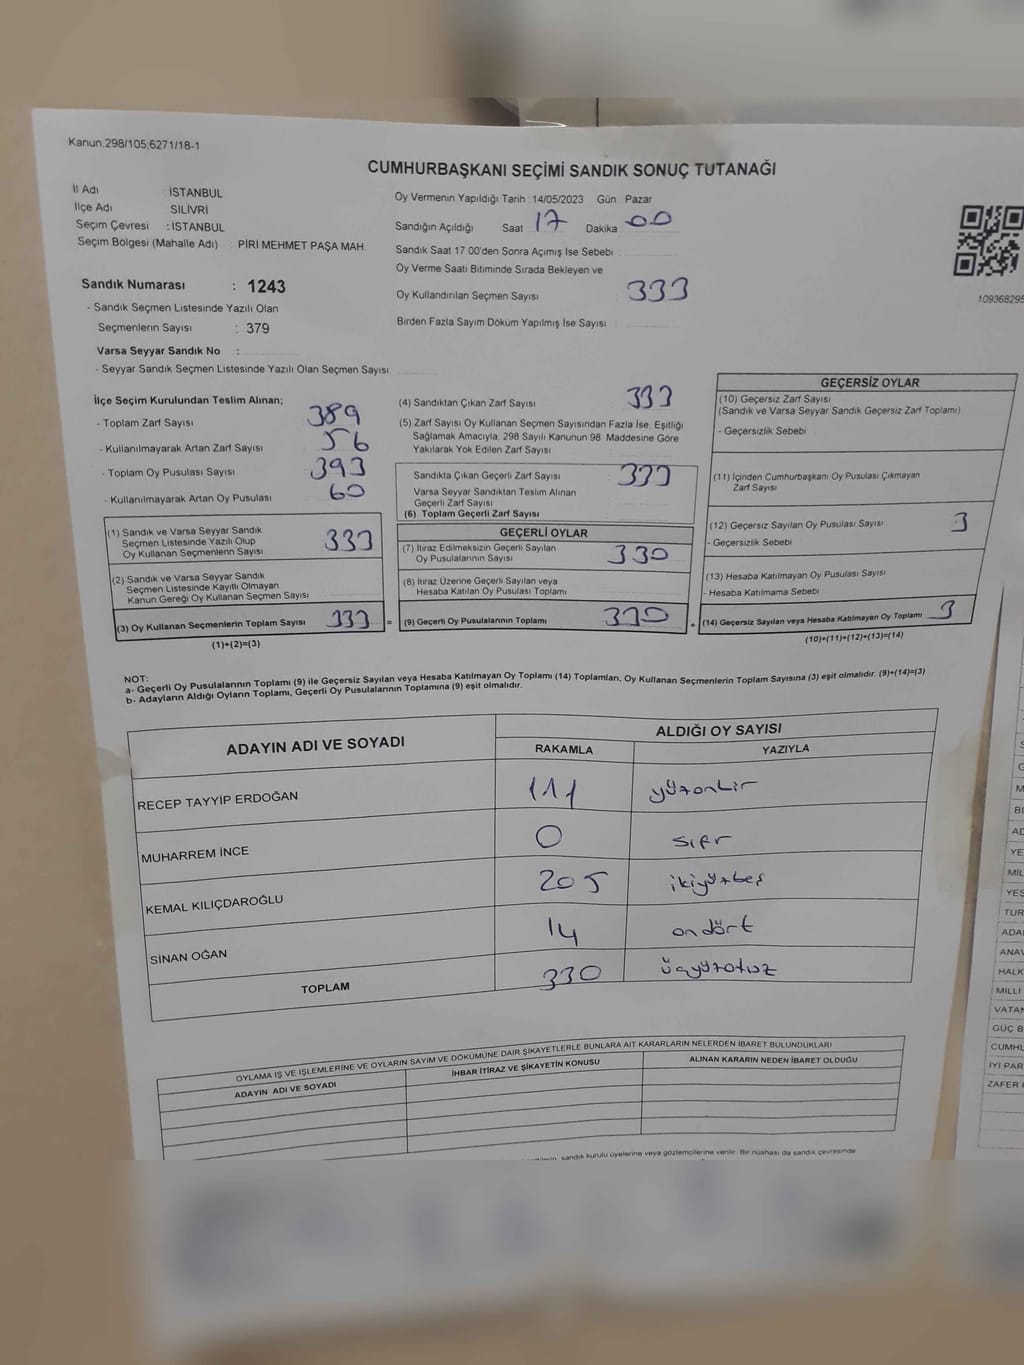 Kanun.298/105,6271/18-1
CUMHURBAŞKANI SEÇİMİ SANDIK SONUÇ TUTANAĞI
İl Adı : İSTANBUL
İlçe Adı SİLİVRİ
Seçim Çevresi : İSTANBUL
Seçim Bölgesi (Mahalle Adı) : PİRİ MEHMET PAŞA MAH.
Sandık Numarası : 1243
- Sandık Seçmen Listesinde Yazılı Olan
Seçmenlerin Sayısı : 379
Varsa Seyyar Sandık No :
- Seyyar Sandık Seçmen Listesinde Yazılı Olan Seçmen Sayısı
Oy Vermenin Yapıldığı Tarih 14/05/2023 Gün Pazar
Sandığın Açıldığı Saat 17 Dakika 00
Sandık Saat 17.00'den Sonra Açılmış İse Sebebi
Oy Verme Saati Bitiminde Sırada Bekleyen ve
Oy Kullandırılan Seçmen Sayısı 333
Birden Fazla Sayım Döküm Yapılmış İse Sayısı
109368295
İlçe Seçim Kurulundan Teslim Alınan;
- Toplam Zarf Sayısı 389
- Kullanılmayarak Artan Zarf Sayısı 56
- Toplam Oy Pusulası Sayısı 393
- Kullanılmayarak Artan Oy Pusulası 60
(1) Sandık ve Varsa Seyyar Sandık
Seçmen Listesinde Yazılı Olup
Oy Kullanan Seçmenlerin Sayısı 333
(2) Sandık ve Varsa Seyyar Sandık
Seçmen Listesinde Kayıtlı Olmayan
Kanun Gereği Oy Kullanan Seçmen Sayısı
(3) Oy Kullanan Seçmenlerin Toplam Sayısı 333 =
(1)+(2)=(3)
(4) Sandıktan Çıkan Zarf Sayısı 333
(5) Zarf Sayısı Oy Kullanan Seçmen Sayısından Fazla İse, Eşitliği
Sağlamak Amacıyla, 298 Sayılı Kanunun 98. Maddesine Göre
Yakılarak Yok Edilen Zarf Sayısı
Sandıkta Çıkan Geçerli Zarf Sayısı 333
Varsa Seyyar Sandıktan Teslim Alınan
Geçerli Zarf Sayısı
(6) Toplam Geçerli Zarf Sayısı
GEÇERLİ OYLAR
(7) İtiraz Edilmeksizin Geçerli Sayılan
Oy Pusulalarının Sayısı 330
(8) İtiraz Üzerine Geçerli Sayılan veya
Hesaba Katılan Oy Pusulası Toplamı
(9) Geçerli Oy Pusulalarının Toplamı 330 +
GEÇERSİZ OYLAR
(10) Geçersiz Zarf Sayısı
(Sandık ve Varsa Seyyar Sandık Geçersiz Zarf Toplamı)
- Geçersizlik Sebebi
(11) İçinden Cumhurbaşkanı Oy Pusulası Çıkmayan
Zarf Sayısı
(12) Geçersiz Sayılan Oy Pusulası Sayısı 3
- Geçersizlik Sebebi
(13) Hesaba Katılmayan Oy Pusulası Sayısı
- Hesaba Katılmama Sebebi
(14) Geçersiz Sayılan veya Hesaba Katılmayan Oy Toplamı 3
(10)+(11)+(12)+(13)=(14)
NOT:
a- Geçerli Oy Pusulalarının Toplamı (9) ile Geçersiz Sayılan veya Hesaba Katılmayan Oy Toplamı (14) Toplamları, Oy Kullanan Seçmenlerin Toplam Sayısına (3) eşit olmalıdır. (9)+(14)=(3)
b- Adayların Aldığı Oyların Toplamı, Geçerli Oy Pusulalarının Toplamına (9) eşit olmalıdır.
ADAYIN ADI VE SOYADI ALDIĞI OY SAYISI
RAKAMLA YAZIYLA
RECEP TAYYİP ERDOĞAN 111 yüzonbir
MUHARREM İNCE 0 sıfır
KEMAL KILIÇDAROĞLU 205 ikiyüzbeş
SİNAN OĞAN 14 ondört
TOPLAM 330 üçyüzotuz
OYLAMA İŞ VE İŞLEMLERİNE VE OYLARIN SAYIM VE DÖKÜMÜNE DAİR ŞİKAYETLERLE BUNLARA AİT KARARLARIN NELERDEN İBARET BULUNDUKLARI
ADAYIN ADI VE SOYADI İHBAR İTİRAZ VE ŞİKAYETİN KONUSU ALINAN KARARIN NEDEN İBARET OLDUĞU
sandık kurulu üyelerine veya gözlemcilerine verilir. Bir nüshası da sandık çevresinde
YE
MİL
YEŞ
TÜR
ADA
ANAV
HALK
MİLLİ
VATAN
GÜÇ B
CUMHU
İYİ PAR
ZAFER